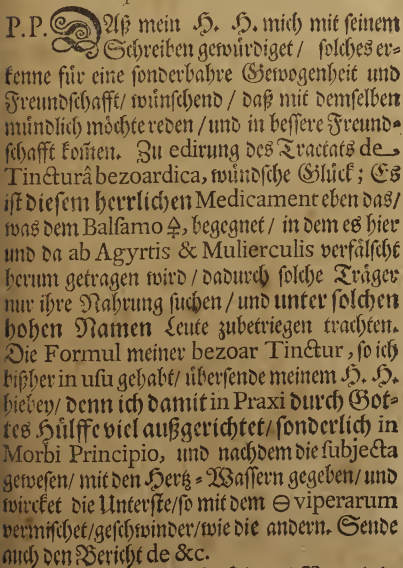 P.P. Daß mein H. H. mich mit seinem
Schreiben gewürdiget / solches er-
kenne für eine sonderbahre Gewogenheit und
Freundschafft / wünschend / daß mit demselben
mündlich möchte reden / und in bessere Freund-
schafft kom̃en. Zu edirung des Tractats de
Tincturâ bezoardica, wündsche Glück; Es
ist diesem herrlichen Medicament eben das /
was dem Balsamo 🜍, begegnet / in dem es hier
und da ab Agyrtis & Mulierculis verfälscht
herum getragen wird / dadurch solche Träger
nur ihre Nahrung suchen / und unter solchen
hohen Namen Leute zubetriegen trachten.
Die Formul meiner bezoar Tinctur, so ich
bißher in usu gehabt / übersende meinem H. H.
hiebey / denn ich damit in Praxi durch Got-
tes Hülffe viel außgerichtet / sonderlich in
Morbi Principio, und nachdem die subjecta
gewesen / mit den Hertz-Wassern gegeben / und
wircket die Unterste / so mit dem 🜔 viperarum
vermischet / geschwinder / wie die andern. Sende
auch den Bericht de &c.